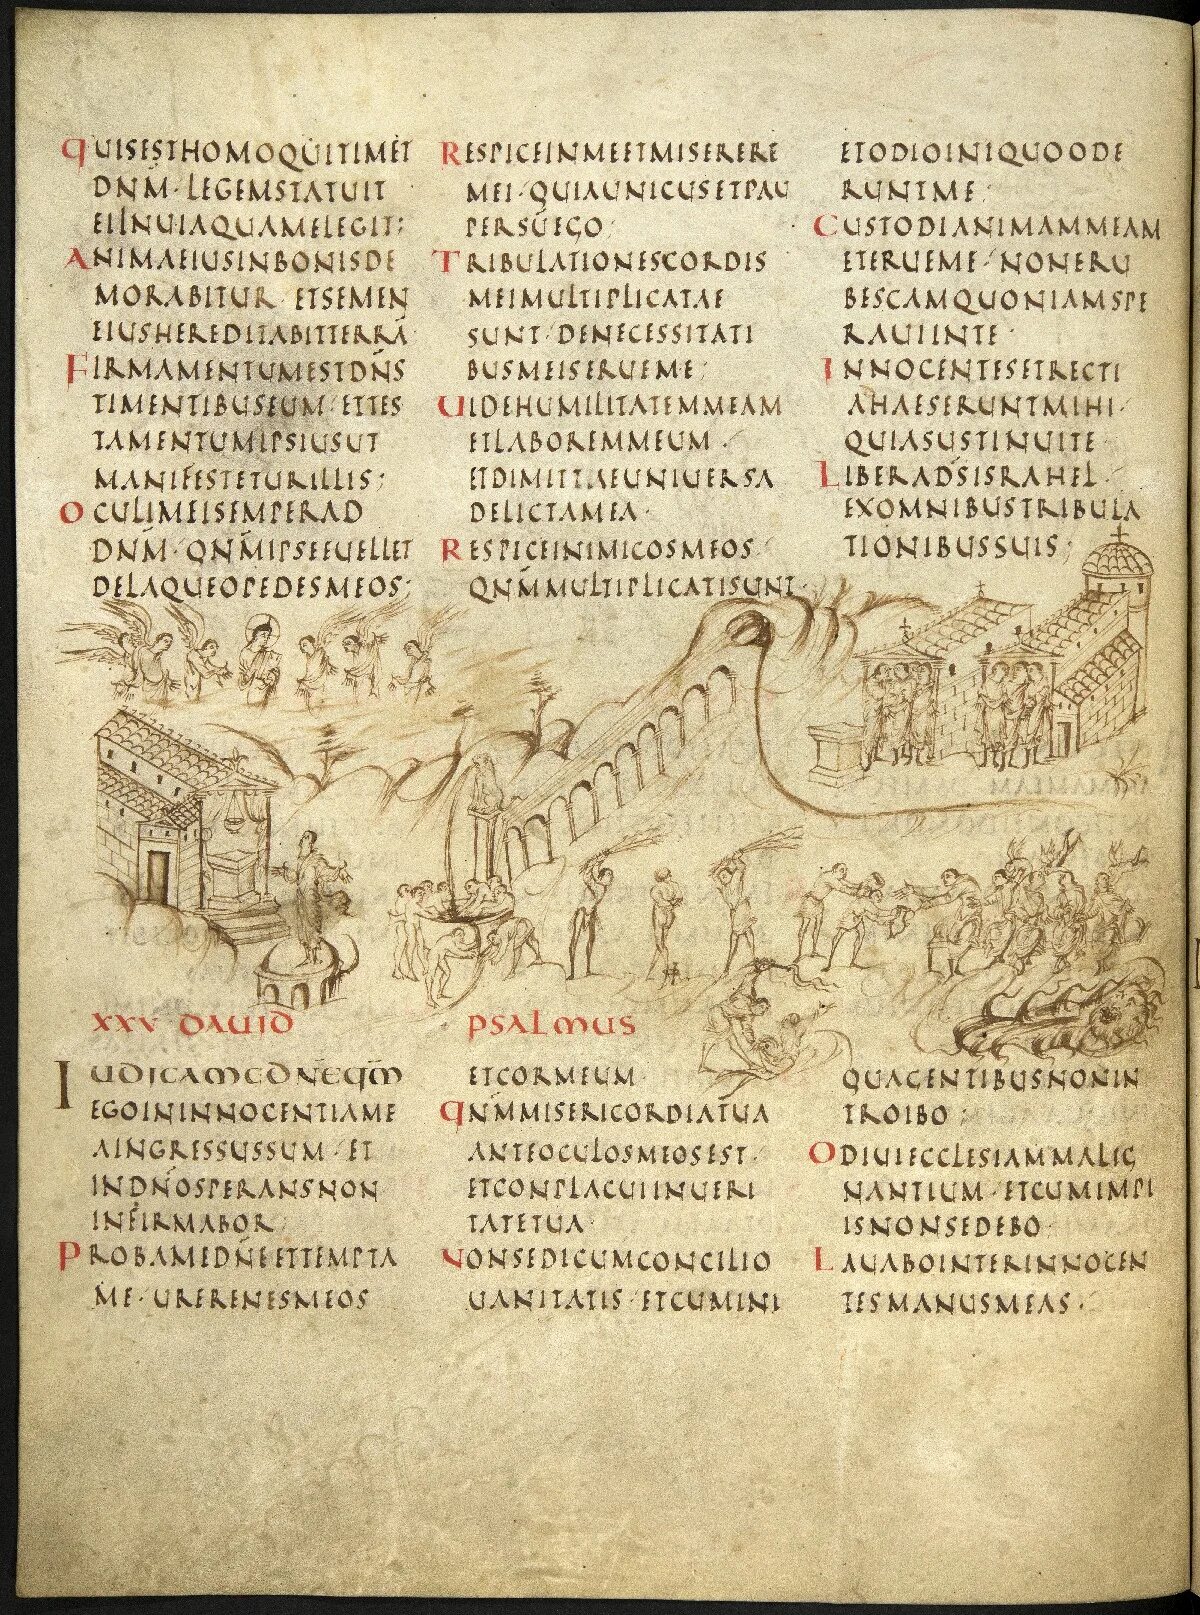 QUISESTHOMOQUITIMET
DNM·LEGEMSTATUIT
EIINUIAQUAMELEGIT;
ANIMAEIUSINBONISDE
MORABITUR·ETSEMEN
EIUSHEREDITABITTERRĀ
FIRMAMENTUMESTDN̄S
TIMENTIBUSEUM·ETTES
TAMENTUMIPSIUSUT
MANIFESTETURILLIS;
OCULIMEISEMPERAD
DN̄M·QN̄MIPSEEUELLET
DELAQUEOPEDESMEOS;
RESPICEINMEETMISERERE
MEI·QUIAUNICUSETPAU
PERSŪEGO;
TRIBULATIONESCORDIS
MEIMULTIPLICATAE
SUNT·DENECESSITATI
BUSMEISERUEME;
UIDEHUMILITATEMMEAM
ETLABOREMMEUM·
ETDIMITTAEUNIUERSA
DELICTAMEA·
RESPICEINIMICOSMEOS
QN̄MMULTIPLICATISUNT·
ETODIOINIQUOODE
RUNTME;
CUSTODIANIMAMMEAM
ETERUEME·NONERU
BESCAMQUONIAMSPE
RAUIINTE·
INNOCENTESETRECTI
AHAESERUNTMIHI·
QUIASUSTINUITE·
LIBERADSISRAHEL·
EXOMNIBUSTRIBULA
TIONIBUSSUIS;
XXV DAUID PSALMUS
IUDICAMEDNEQM̄
EGOININNOCENTIAME
AINGRESSUSSUM·ET
INDN̄OSPERANSNON
INFIRMABOR;
PROBAMEDN̄EETTEMPTA
ME·URERENESMEOS
ETCORMEUM·
QN̄MMISERICORDIATUA
ANTEOCULOSMEOSEST·
ETCONPLACUIINUERI
TATETUA·
NONSEDICUMCONCILIO
UANITATIS·ETCUMINI
QUAGENTIBUSNONIN
TROIBO;
ODIUIECCLESIAMMALIG
NANTIUM·ETCUMIMPI
ISNONSEDEBO·
LAUABOINTERINNOCEN
TESMANUSMEAS·